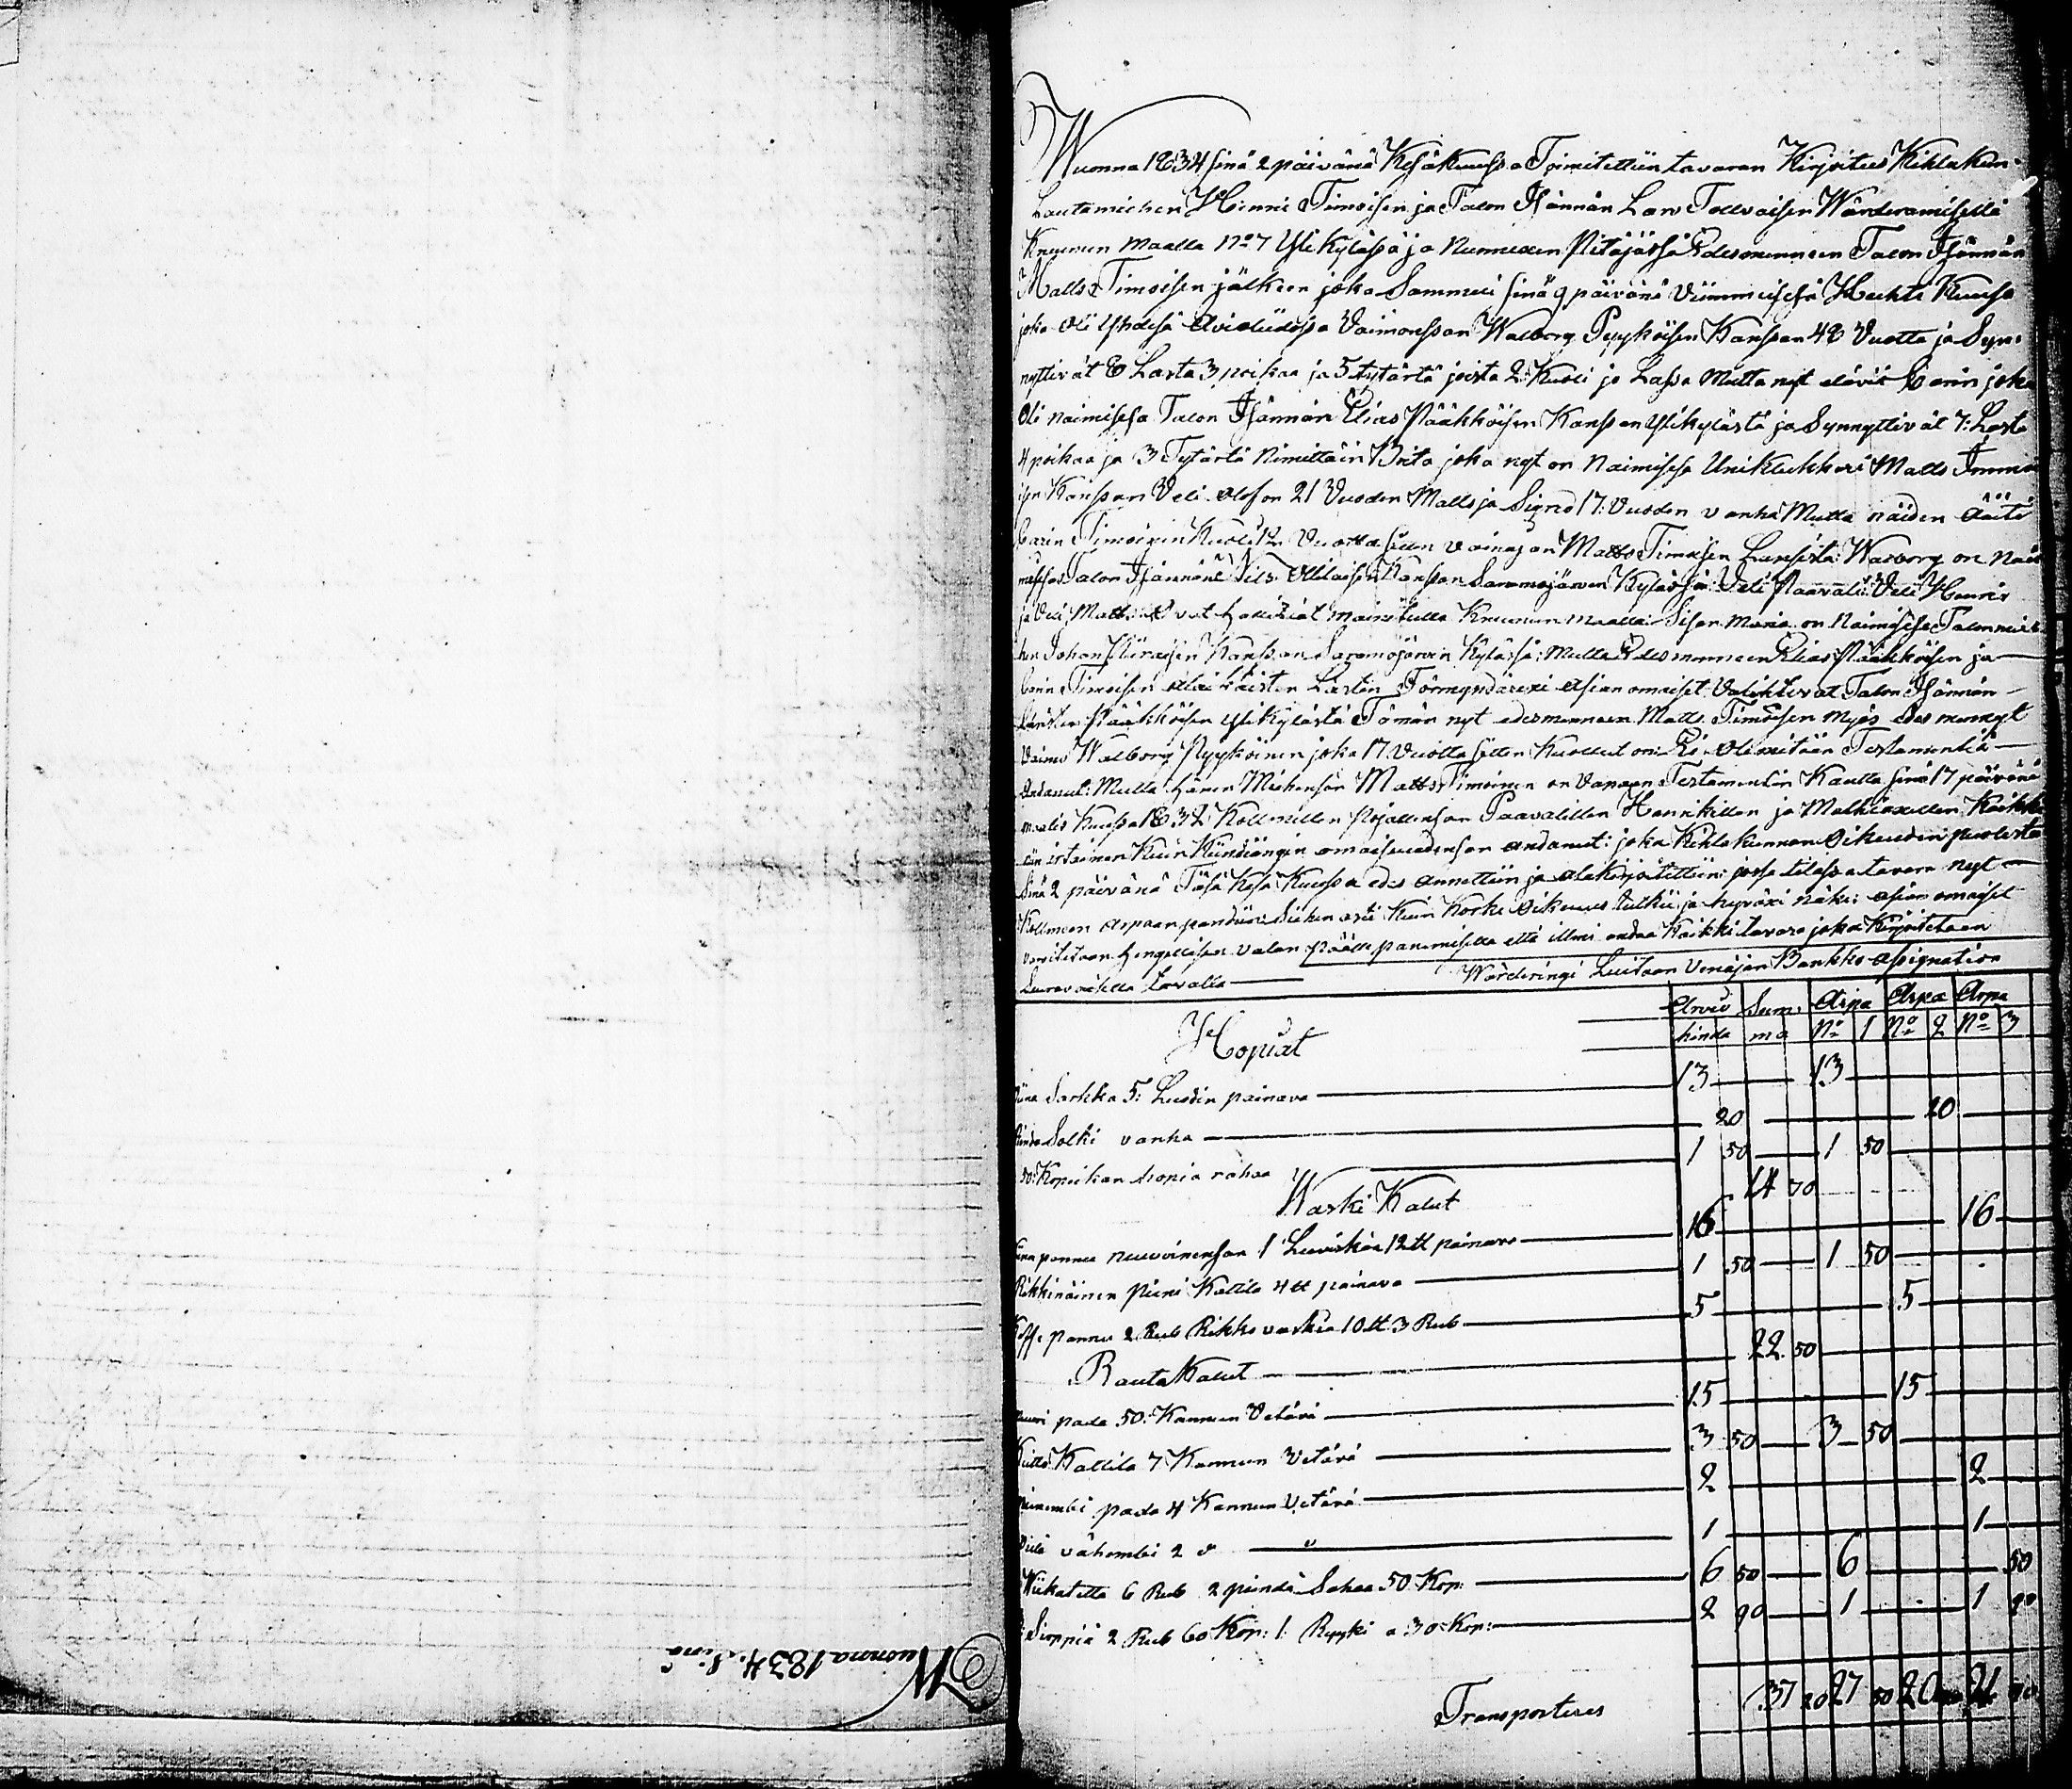 Wuonna 1834 Sinä
Wuonna 1834 sinä 2 päivänä Kesäkuussa Toimitettiin tavaran Kirjoitus Kihlakun-
Lautamiehen Henric Timoisen ja Talon Isännän Lars Tolvaisen Wärderamisella
Kruunun maalla No 7 Ylikylässä ja Nurmexen Pitäjässä Edesmenneen Talon Isännän
Matts Timoisen jälkeen joka Sammui sinä 9 päivänä viimmeisesä Huhti Kuussa
joka oli yhdesä Avioliidossa Vaimonssan Walborg Pyyköisen Kanssan 48 Vuotta ja Syn-
nyttivät 8 Lasta 3 poikaa ja 5 tytärtä joista 2 Kuoli jo Lassa Mutta nyt elävit Carin joka
Oli naimisesa Talon Isännän Elias Pääkköisen Kanssan Ylikylästä ja Synnyttivät 7: Lasta
4 poikaa ja 3 Tytärtä Nimittäin Brita joka nyt on Naimisesa Matts
isen Kanssan Veli Olof on 21 Vuoden Matts ja Signe 17: Vuoden vanha Mutta näiden äiti
Carin Timoinen Kuoli 12 Vuotta sitten vainajan Matts Timoisen Lapsista: Walborg on Nai
misessa Talon Isännänä Nils Ollilaisen Kanssan Saramojärven Kylässä: Veli Paavali: Veli Henric
ja Veli Matts: ovat hallitziat mainitulla Kruunun maalla: Sisar Maria on Naimisesa Talonmie
hen Johan Kanssan Saramojärven Kylässä: Mutta Edesmenneen Elias Pääkköisen ja
Carin Timoisen alaikäisten Lasten Förmyndärixi asian omaiset Valihtivat Talon Isännän
Pääkköisen Ylikylästä Tämän nyt edesmenneen Matts Timoisen myös edes mennyt
Vaimo Walborg Pyyköinen joka 17 Vuotta sitten Kuollut on: Ei ole mitään Testamentiä
Andanut: Mutta hänen Miehensän Matts Timoinen on Vapaan Testamentin Kautta sinä 17 päivänä
maalis Kuussa 1832 Kollmillen Pojallensan Paavalillen Henrikillen ja Mathiaxellen Kaikki
irtainen Kuin Kiindiängin omaisuudensan andanut: joka Kihlakunnan Oikeuden puolesta
Sinä 2 päivänä Täsä Kesä Kuussa edes annettiin ja alakirjoitettiin: jossa tilassa tavara nyt
Kollmeen Arpaan pandiin Siihen asti Kuin Korke Oikeuus tutkii ja hyväxi näkee: asian omaiset
varoitetaan hengellisen valan päälle panemisella että illmi andaa Kaikki tavara joka Kirjoitetaan
Seuravaisella tavalla Wärderingi Luitaan Venäjän Bankko Assignation
Arvio Sum: Arpa Arpa Arpa
hinda ma No 1 No 2 No 3
Hopiat
Viina Sarkka 5: Luodin painava 13 13
Rinda Solki vanha 20 20
50: Kopeikan hopia rahaa 1 50 1 50
14 70
Waski Kalut
Viina pannu nuuvoinensan 1 Leiviskää 12 ℔ painava 16 16
Rikkinäinen Pieni Kattila 4 ℔ painava 1 50 1 50
Koffe pannu 2 Rub Rikko vaskia 10 ℔ 3 Rub 5 5
22 50
Rauta Kalut
Muuri pada 50: Kannun Vetävä 15 15
Keitto Kattila 7 Kannun Vetävä 3 50 3 50
Pienembi pada 4 Kannun Vetävä 2 2
Vielä vähembi 2 d " 1 1
Wiikatetta 6 Rub 2 piendä Sahaa 50 Kop: 6 50 6 50
Sirppiä 2 Rub 60 Kop: 1 Ryyki a 30 Kop: 2 90 1 1 90
Transporteras 37 20 27 50 20 21 90